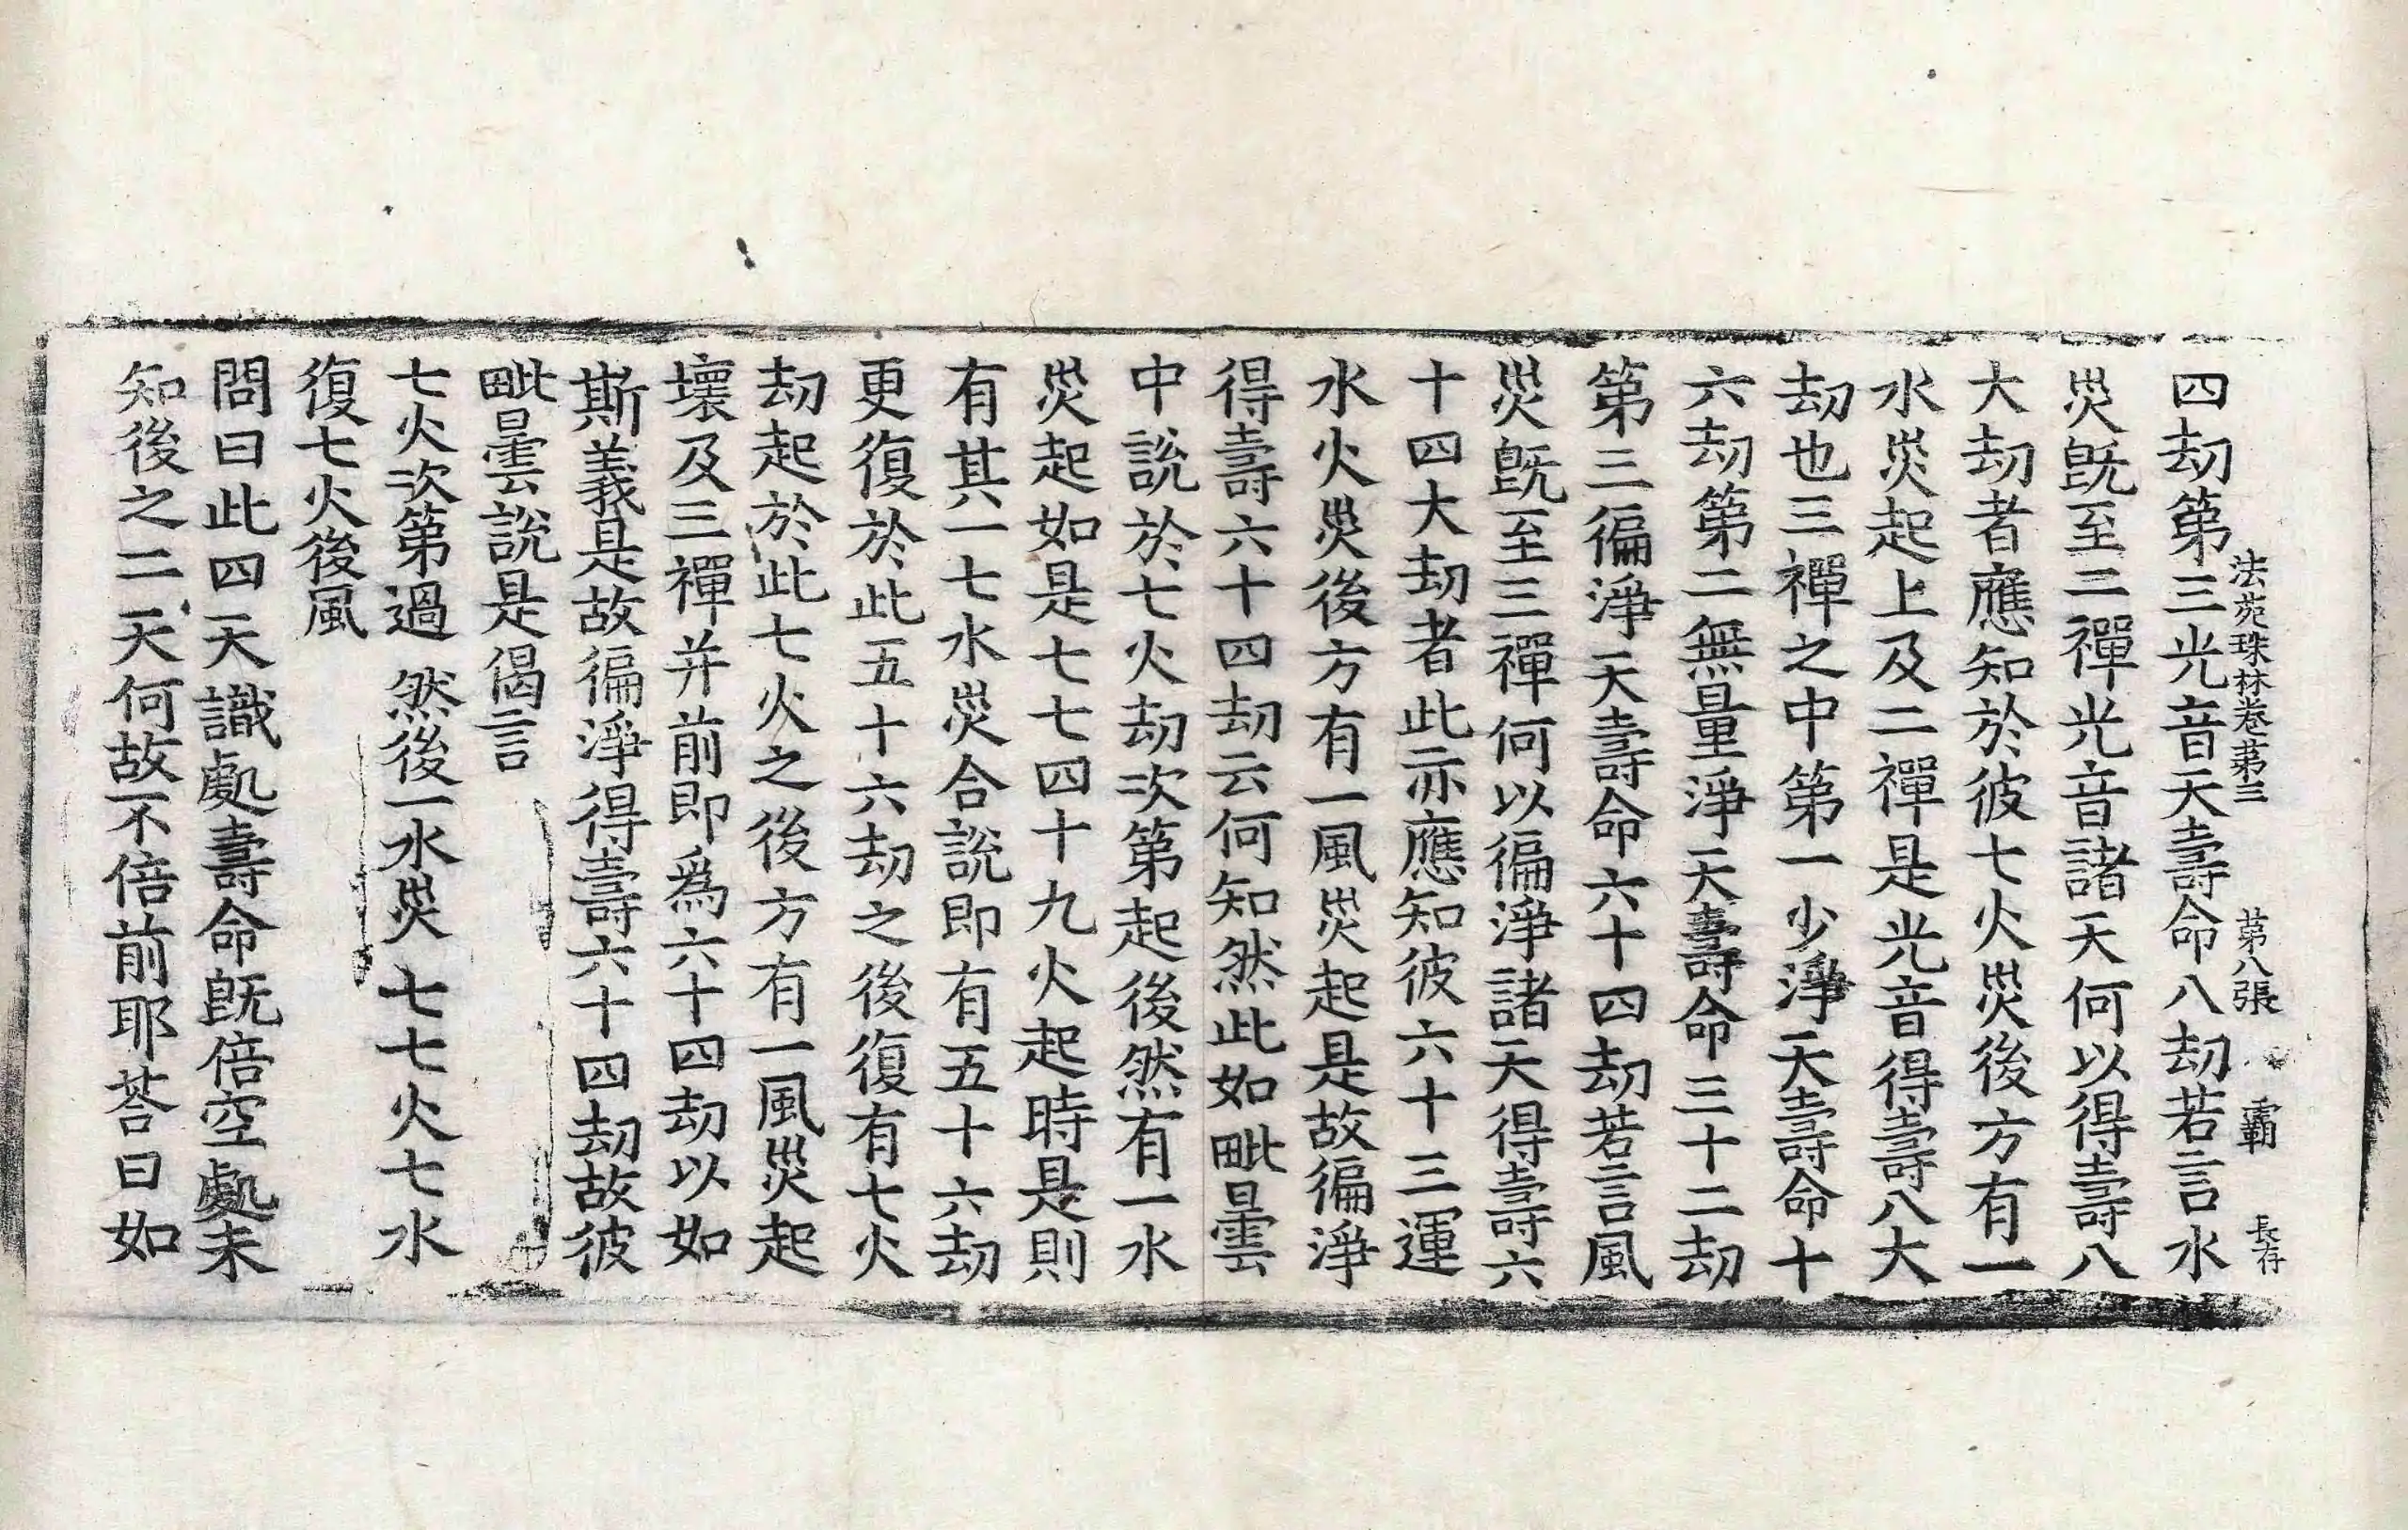 法苑珠林卷第三　第八張　霸　長存
四劫第三光音天壽命八劫若言水
災旣至二禪光音諸天何以得壽八
大劫者應知於彼七火災後方有一
水災起上及二禪是光音得壽八大
劫也三禪之中第一少淨天壽命十
六劫第二無量淨天壽命三十二劫
第三徧淨天壽命六十四劫若言風
災旣至三禪何以徧淨諸天得壽六
十四大劫者此亦應知彼六十三運
水火災後方有一風災起是故徧淨
得壽六十四劫云何知然此如毗曇
中說於七火劫次第起後然有一水
災起如是七七四十九火起時是則
有其一七水災合說即有五十六劫
更復於此五十六劫之後復有七火
劫起於此七火之後方有一風災起
壞及三禪并前即爲六十四劫以如
斯義是故徧淨得壽六十四劫故彼
毗曇說是偈言
七火次第過　然後一水災　七七火七水
復七火後風
問曰此四天識處壽命旣倍空處未
知後之二天何故不倍前耶荅曰如